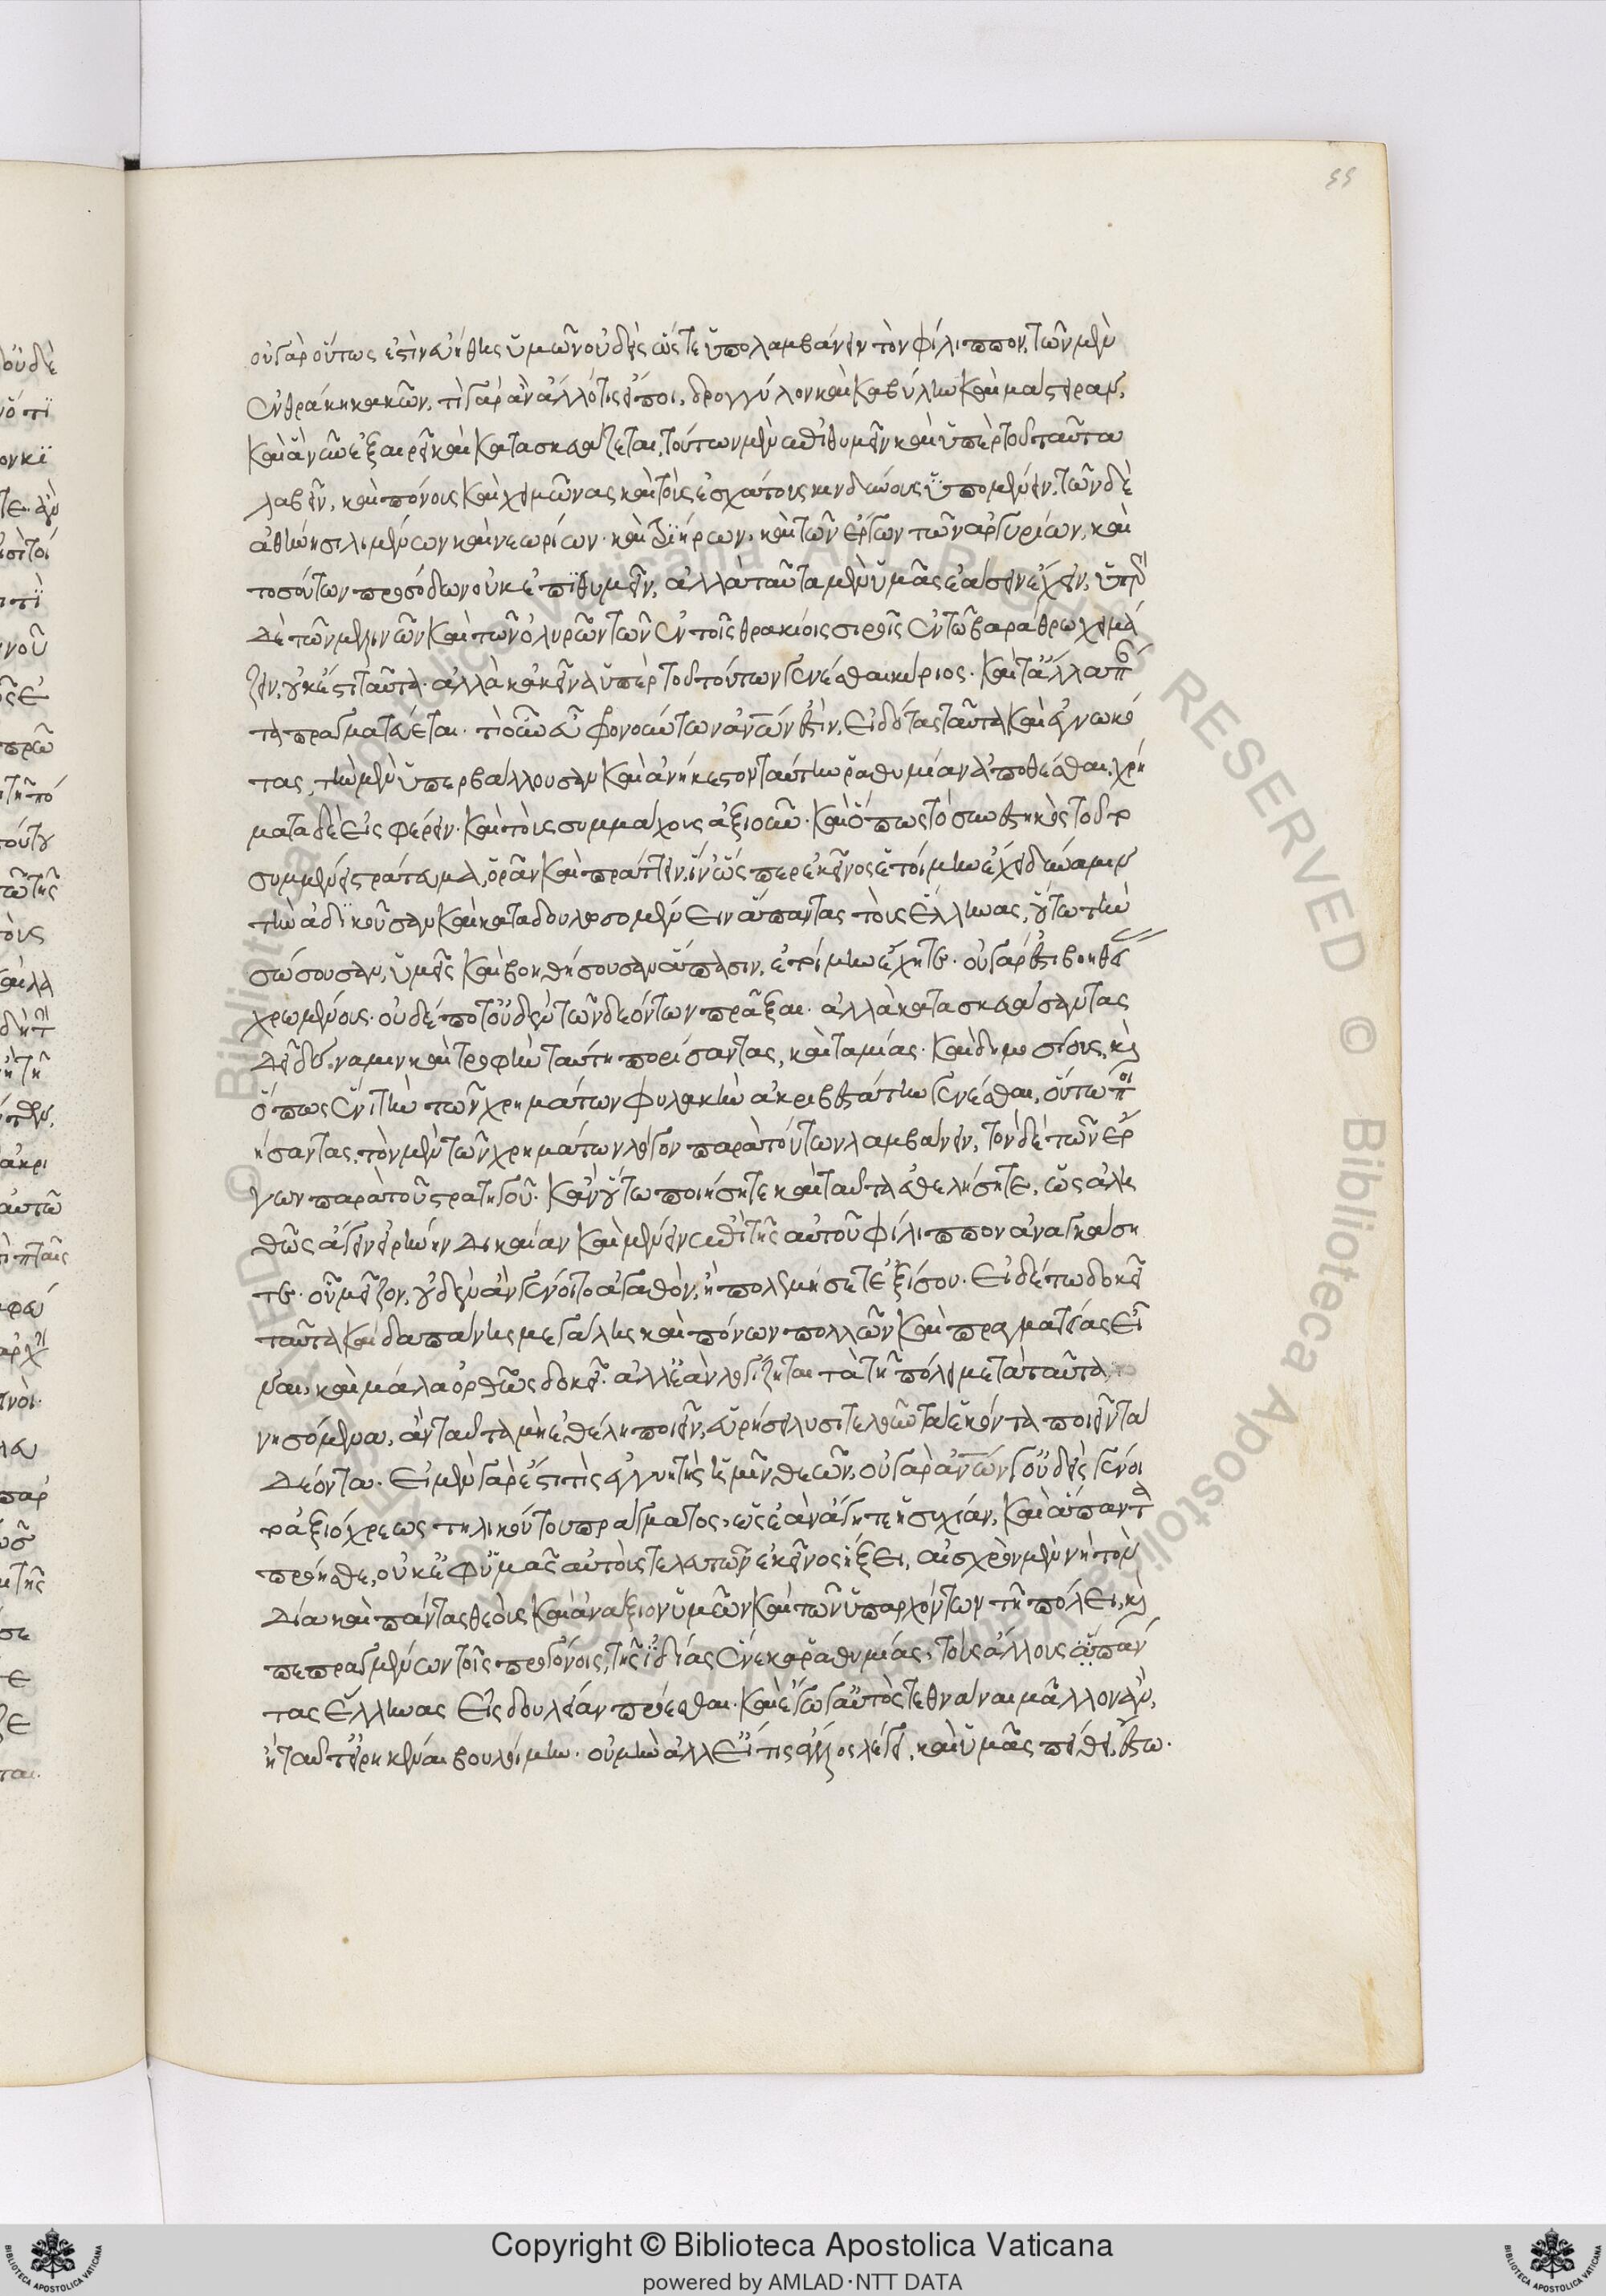 55
οὐ γὰρ οὕτως ἐστὶν εὐήθης ὑμῶν οὐδεὶς ὥστε ὑπολαμβάνειν τὸν φίλιππον, τῶν μὲν
ἐν θράκη κακῶν, τί γὰρ ἂν ἄλλό τις εἴποι, δρογγύλον καὶ καβύλην καὶ μάστειραν,
καὶ ἃ νῦν ἐξαιρεῖ καὶ κατασκευάζεται, τούτων μὲν ἐπιθυμεῖν καὶ ὑπὲρ τοῦ ταῦτα
λαβεῖν, καὶ πόνους καὶ χειμῶνας καὶ τοὺς ἐσχάτους κινδύνους ὑπομένειν, τῶν δὲ
ἀθήνησι λιμένων καὶ νεωρίων· καὶ τριήρων, καὶ τῶν ἔργων τῶν ἀργυρίων, καὶ
τοσούτων προσόδων οὐκ ἐπιθυμεῖν, ἀλλὰ ταῦτα μὲν ὑμᾶς ἐάσειν ἔχειν, ὑπὲρ
δὲ τῶν μελινῶν καὶ τῶν ὀλυρῶν τῶν ἐν τοῖς θρακίοις σιροῖς ἐν τῶ βαράθρω χειμά
ζειν, οὐκ ἔστι ταῦτα· ἀλλὰ κἀκεῖνα ὑπὲρ τοῦ τούτων γενέσθαι κύριος· καὶ τἄλλα π
τα πραγματεύεται· τί οὖν εὖ φρονούντων ἀνων ἐστὶν, εἰδότας ταῦτα καὶ ἐγνωκό
τας, τὴν μὲν ὑπερβάλλουσαν καὶ ἀνήκεστον ταύτην ῥαθυμίαν ἀποθέσθαι, χρή
ματα δὲ εἰσφέρειν· καὶ τοὺς συμμάχους ἀξιοῦν· καὶ ὅπως τὸ συνεστηκὸς τοῦτο
συμμένει στράτευμα, ὁρᾶν καὶ πράττειν, ἵν' ὥσπερ ἐκεῖνος ἑτοίμην ἔχει δύναμιν
τὴν ἀδικοῦσαν καὶ καταδουλωσομένην ἅπαντας τοὺς ἕλληνας, οὕτω τὴν
σώσουσαν, ὑμεῖς καὶ βοηθήσουσαν ἅπασιν, ἑτοίμην ἔχητε· οὐ γάρ ἐστι βοηθεί
χρωμένους· οὐδέποτ' οὐδὲν τῶν δεόντων πρᾶξαι· ἀλλὰ κατασκευάσαντας
δεῖ δύναμιν καὶ τροφὴν ταύτη πορίσαντας, καὶ ταμίας· καὶ δημοσίους, καὶ
ὅπως ἔνι τὴν τῶν χρημάτων φυλακὴν ἀκριβεστάτην γενέσθαι, οὕτω ποι
ήσαντας, τὸν μὲν τῶν χρημάτων λόγον παρὰ τούτων λαμβάνειν, τὸν δὲ τῶν ἔρ
γων παρὰ τοῦ στρατηγοῦ· κἂν οὕτω ποιήσητε καὶ ταῦτα ἐθελήσητε, ὡς ἀλη
θῶς ἄγειν εἰρήνην δικαίαν καὶ μένειν ἐπὶ τῆς αὑτοῦ φίλιππον ἀναγκάση
τε· οὗ μεῖζον, οὐδὲν ἂν γένοιτο ἀγαθὸν, ἢ πολεμήσετε ἐξ ἴσου· εἰ δέ τω δοκεῖ
ταῦτα καὶ δαπάνης μεγάλης καὶ πόνων πολλῶν καὶ πραγματείας εἶ
ναι, καὶ μάλα ὀρθῶς δοκεῖ· ἀλλ' ἐὰν λογίζηται τὰ τῆ πόλει μετὰ ταῦτα
νησόμενα, ἂν ταῦτα μὴ ἐθέλη ποιεῖν, εὑρήσει λυσιτελοῦν τὸ ἑκόντα ποιεῖν τὰ
δέοντα· εἰ μὲν γὰρ ἔστι τὶς ἐγγυητὴς ὑμῖν θεῶν, οὐ γὰρ ἀνων γ' οὐδεὶς γένοι
τ' ἀξιόχρεως τηλικούτου πράγματος, ὡς ἐὰν ἄγητε ἡσυχίαν, καὶ ἅπαντα
προῆσθε, οὐκ ἐφ' ὑμᾶς αὐτοὺς τελευτῶν ἐκεῖνος ἥξει, αἰσχρὸν μὲν νὴ τὸν
δία καὶ πάντας θεοὺς καὶ ἀνάξιον ὑμῶν καὶ τῶν ὑπαρχόντων τῆ πόλει, καὶ
πεπραγμένων τοῖς προγόνοις, τῆς ἰδίας ἕνεκα ῥαθυμίας, τοὺς ἄλλους ἅπαν
τας ἕλληνας εἰς δουλείαν προέσθαι· καὶ ἔγωγ' αὐτὸς τεθνάναι μᾶλλον ἂν,
ἢ ταῦτ' εἰρηκέναι βουλοίμην· οὐ μὴν ἀλλ' εἴ τις ἄλλος λέγει, καὶ ὑμᾶς πείθει, ἔστω·
Copyright © Biblioteca Apostolica Vaticana
powered by AMLAD·NTT DATA